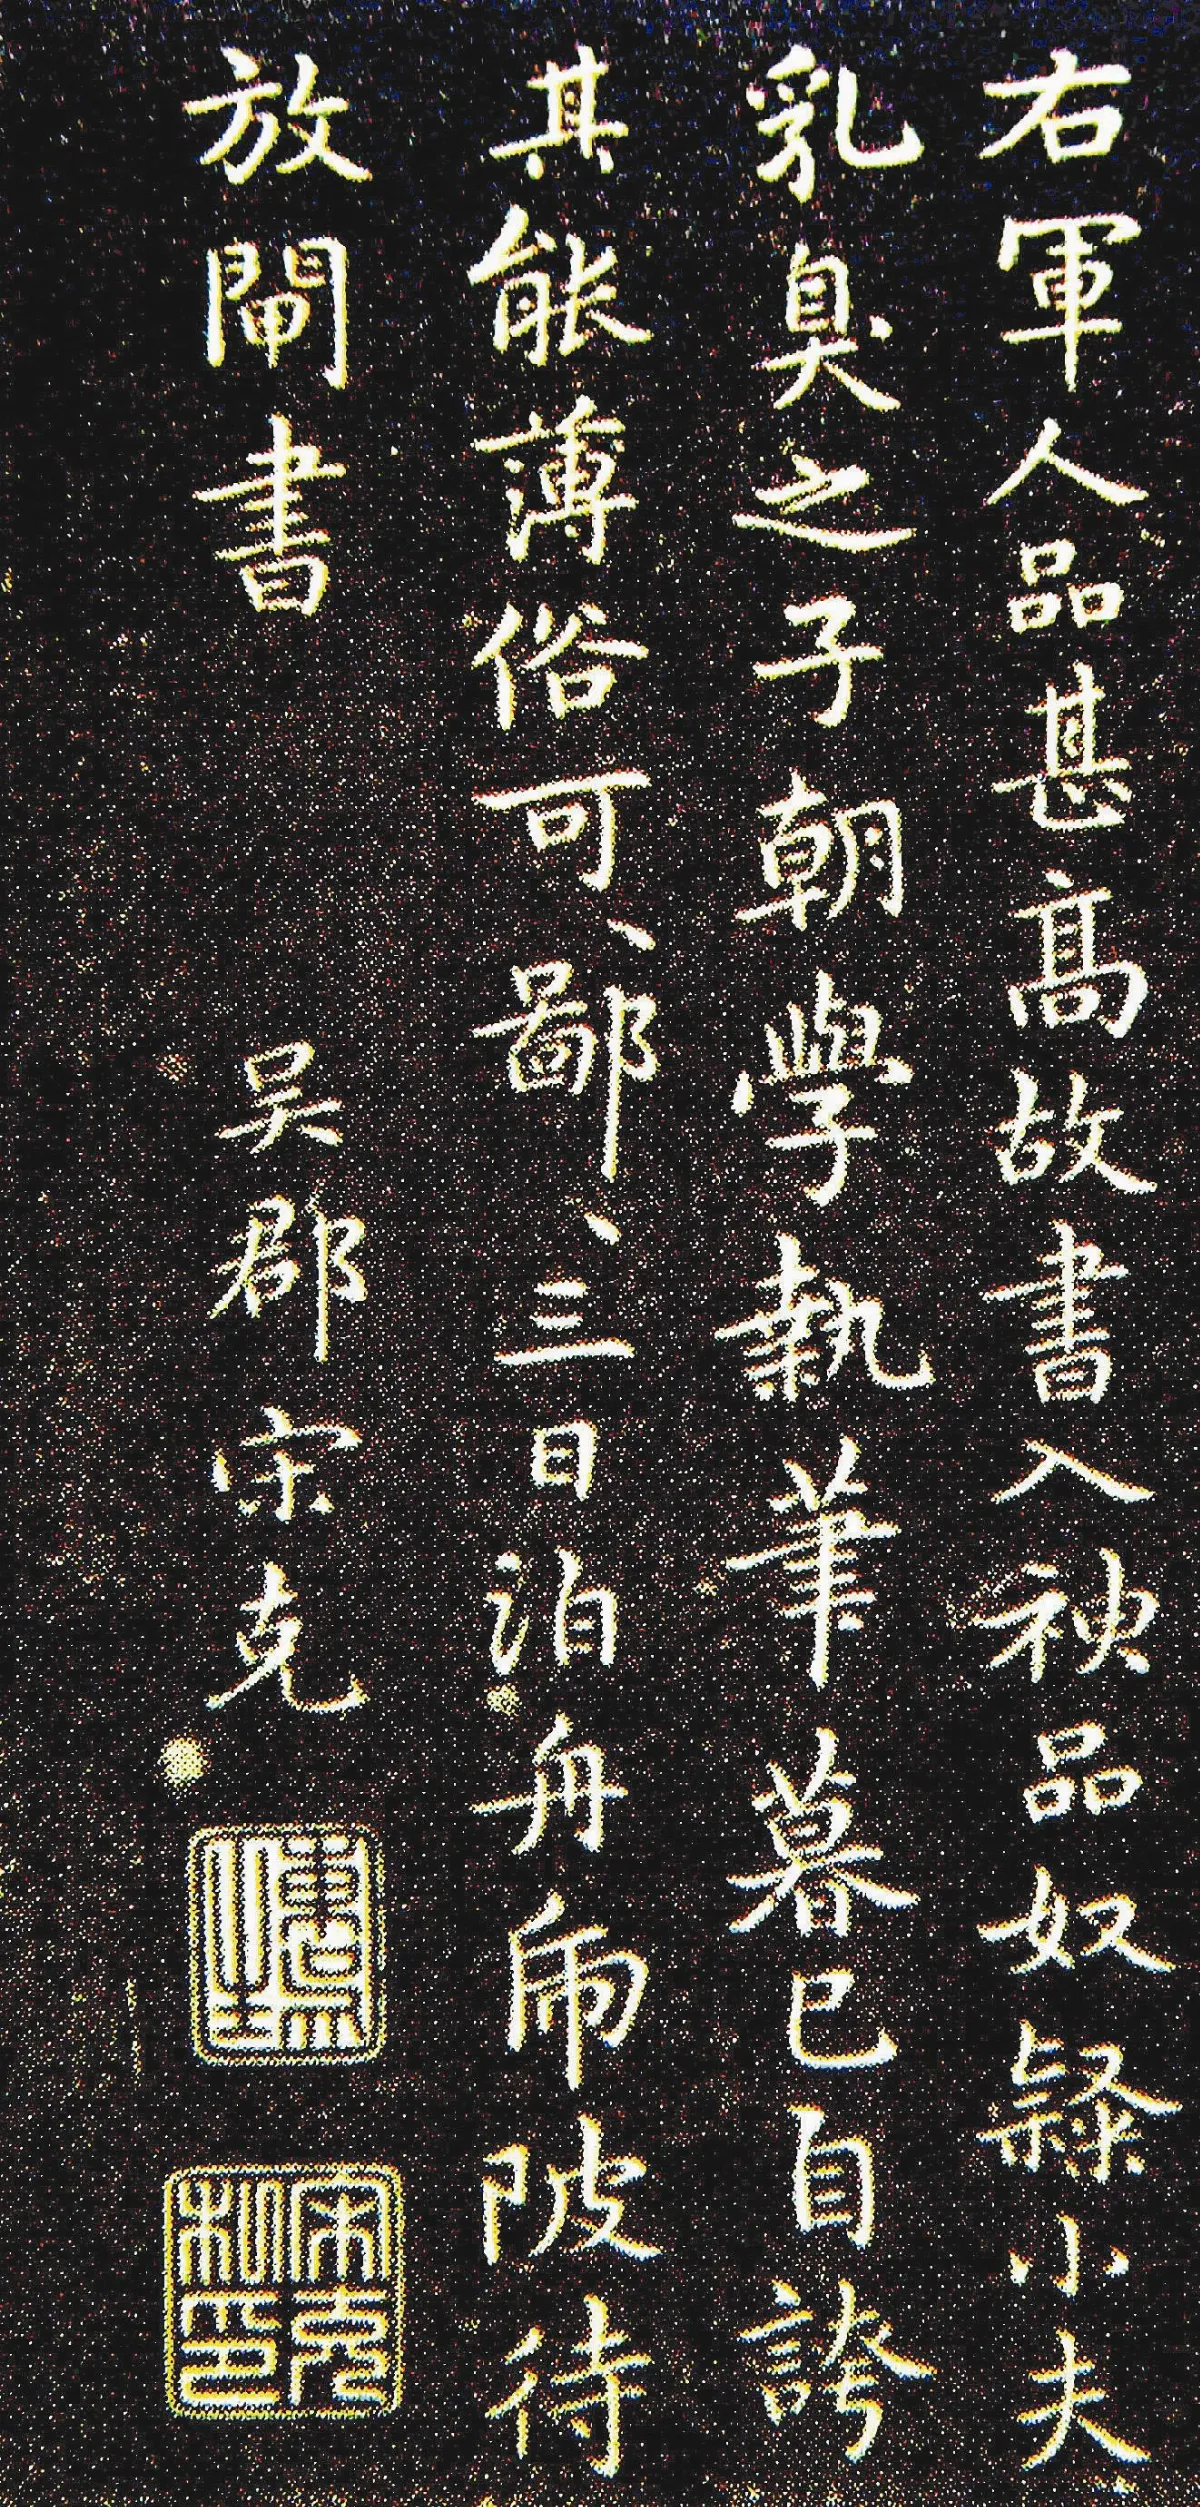 右軍人品甚高故書入神品奴隸小夫
乳臭之子朝學執筆暮已自誇
其能薄俗可、鄙、三日泊舟虎陂待
放閘書　吳郡宋克
宋克私印